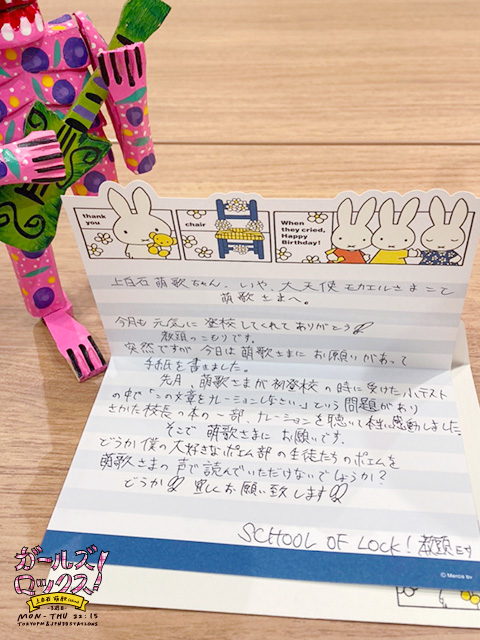 thank
you
chair
When
they cried,
Happy
Birthday!
上白石 萌歌ちゃん、いや、大天使 モカエルさまこと
萌歌さまへ。
今月も 元気に 登校してくれて ありがとう
教頭のこもりです。
突然ですが 今日は 萌歌さまに お願いがあって
手紙を書きました。
先月、萌歌さまが 初登校の時に 受けた 小テスト
の中で「この文章をナレーションしなさい。」という 問題があり
さかた校長の本の一部、ナレーションを 聴いて 本当に感動しました。
そこで 萌歌さまに お願いです。
どうか 僕の大好きな ポエム部の生徒たちの ポエムを
萌歌さまの 声で 読んでいただけないでしょうか?
どうか 宜しくお願い致します
SCHOOL OF LOCK! 教頭
© Mercis bv
ガールズ
ロックス!
上白石 萌歌
-3週目-
MON-THU 22:15
TOKYOFM & JFN38STATIONS